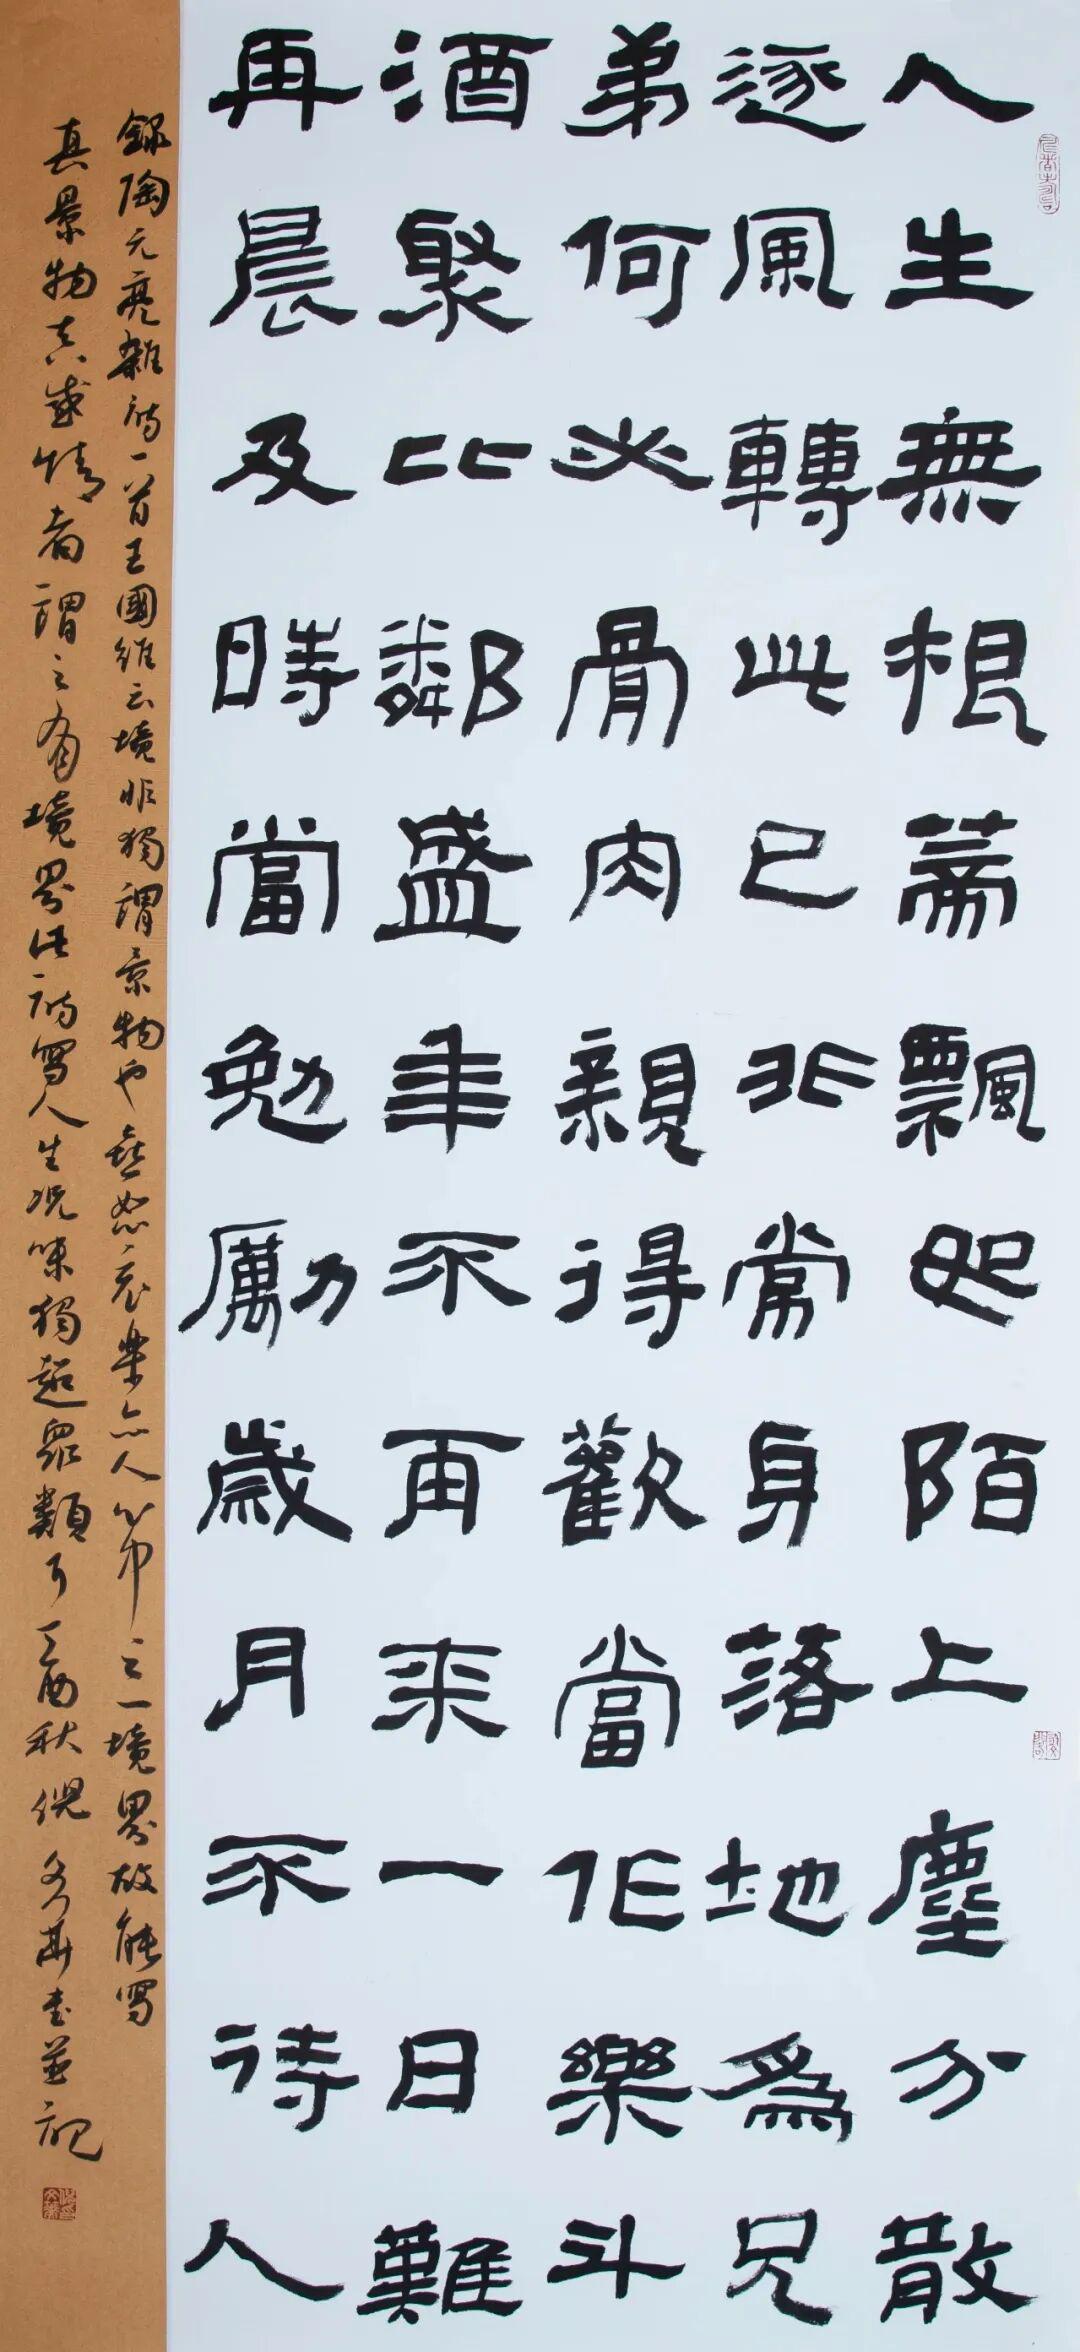 人生無根蔕飄如陌上塵分散
逐風轉此已非常身落地爲兄
弟何必骨肉親得歡當作樂斗
酒聚比鄰盛年不再來一日難
再晨及時當勉勵歲月不待人
錄陶元亮雜詩一首王國維云境非獨謂景物也喜怒哀樂亦人心中之一境界故能寫
真景物真感情者謂之有境界此詩寫人生況味獨超眾類丁酉秋倪文書並記